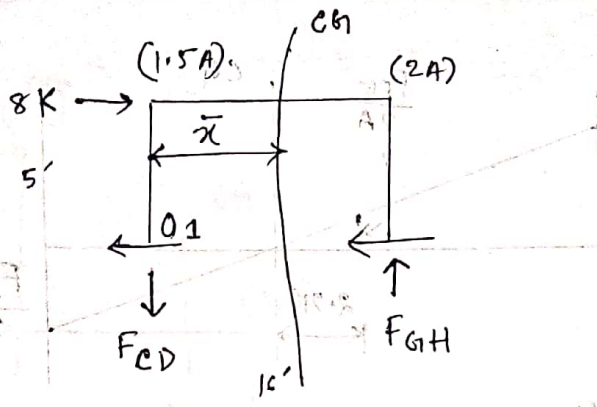 CG
(1.5A).
(2A)
8K
x̄
5'
O1
F_CD
F_GH
16'